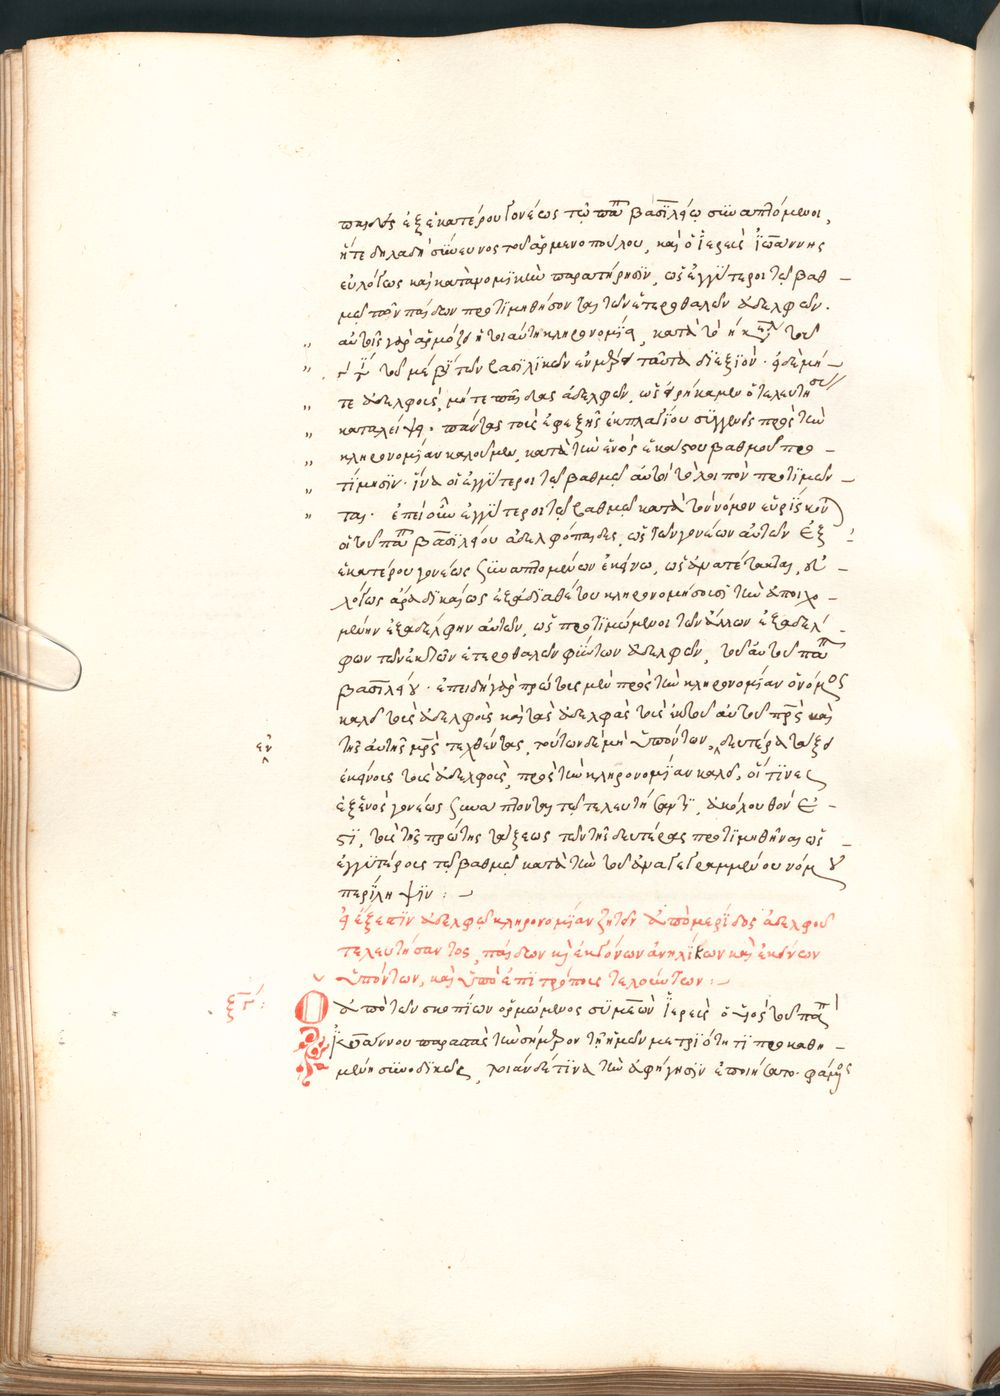 παῖδες ἐξ ἑκατέρου γονέως τῶ παπᾶ βασιλείω συναπτόμενοι,
ἥτε δηλαδὴ σύνευνος τοῦ ἀρμενοπούλου, καὶ ὁ ἱερεὺς ἰωάννης
εὐλόγως καὶ κατὰ νομικὴν παρατήρησιν, ὡς ἐγγύτεροι τῶ βαθ
μῶ τῶν παίδων προτιμηθήσονται τῶν ἑτεροθαλῶν ἀδελφῶν.
αὐτοῖς γὰρ ἁρμόζει ἡ τοιαύτη κληρονομία, κατὰ τὸ
τοῦ με βι τῶν βασιλικῶν ταῦτα διεξιόν. εἰ δὲ μή
τε ἀδελφοὺς, μήτε παῖδας ἀδελφῶν, ὡς εἰρήκαμεν ὁ τελευτήσας
καταλείψει. πάντας τοὺς ἐφεξῆς ἐκ πλαγίου συγγενεῖς πρὸς τὴν
κληρονομίαν καλοῦμεν, κατὰ τὴν ἑνὸς ἑκάστου βαθμοῦ προ
τίμησιν. ἵνα οἱ ἐγγύτεροι τῶ βαθμῶ αὐτοὶ τῶν λοιπῶν προτιμῶν
ται. ἐπεὶ οὖν ἐγγύτεροι τῶ βαθμῶ κατὰ τὸν νόμον εὑρίσκον
οἱ τοῦ παπᾶ βασιλείου ἀδελφόπαιδες, ὡς τῶν γονέων αὐτῶν ἐξ
ἑκατέρου γονέως συναπτομένων ἐκείνω, ὡς ἀνατέτακται, εὐ
λόγως ἄρα δικαίως ἐξαδιαθέτου κληρονομήσουσι τὴν ἀποιχο
μένην ἐξαδέλφην αὐτῶν, ὡς προτιμώμενοι τῶν ἄλλων ἐξαδέλ
φων τῶν ἐκ τῶν ἑτεροθαλῶν φύντων ἀδελφῶν, τοῦ αὐτοῦ παπᾶ
βασιλείου. ἐπειδὴ γὰρ πρώτως μὲν πρὸς τὴν κληρονομίαν ὁ νόμος
καλεῖ τοὺς ἀδελφοὺς καὶ τὰς ἀδελφὰς τοὺς ἐκ τοῦ αὐτοῦ πρς καὶ
τῆς αὐτῆς μρς τεχθέντας, τούτων δὲ μὴ ὑπόντων, δευτέρα τάξει
ἐν
ἐκείνους τοὺς ἀδελφοὺς, πρὸς τὴν κληρονομίαν καλεῖ, οἵτινες
ἐξ ἑνὸς γονέως συνάπτονται τῶ τελευτήσαντι, ἀκόλουθόν ἐ
στι, τοὺς τῆς πρώτης τάξεως τῶν τῆς δευτέρας προτιμηθῆναι ὡς
ἐγγυτέρους τῶ βαθμῶ κατὰ τὴν τοῦ ἀναγεγραμμένου νόμου
περίληψιν :
εἰ ἔξεστιν ἀδελφῶ κληρονομίαν ζητεῖν ἀπὸ μερίδος ἀδελφοῦ
τελευτήσαντος, παίδων καὶ ἐκγόνων ἀνηλίκων καὶ ἐκείνων
ὑπόντων, καὶ ὑπὸ ἐπιτρόποις τελούντων :
Ὁ ἀπὸ τῶν σκοπίων ὁρμώμενος συμεὼν ἱερεὺς ὁ υἱὸς τοῦ παπᾶ
ἰωάννου παραπὰς τὴν σήμερον τῆ ἡμῶν μετριότητι προκαθη
μένη συνοδικῶς, τοιάνδε τινὰ τὴν ἀφήγησιν ἐποιήσατο. φάμενος